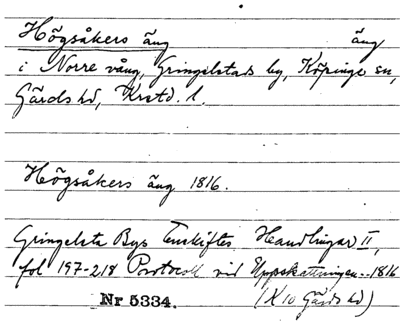 Högsåkers äng äng
i Norre vång, Gringelstads by, Köpinge sn,
Gärds hd, Krstd. l.
Högsåkers äng 1816.
Gringelsta Bys Enskiftes Handlingar II,
fol 197-218 Protocoll vid Uppskattningen--1816
Nr 5334. (K 10 Gärds hd)